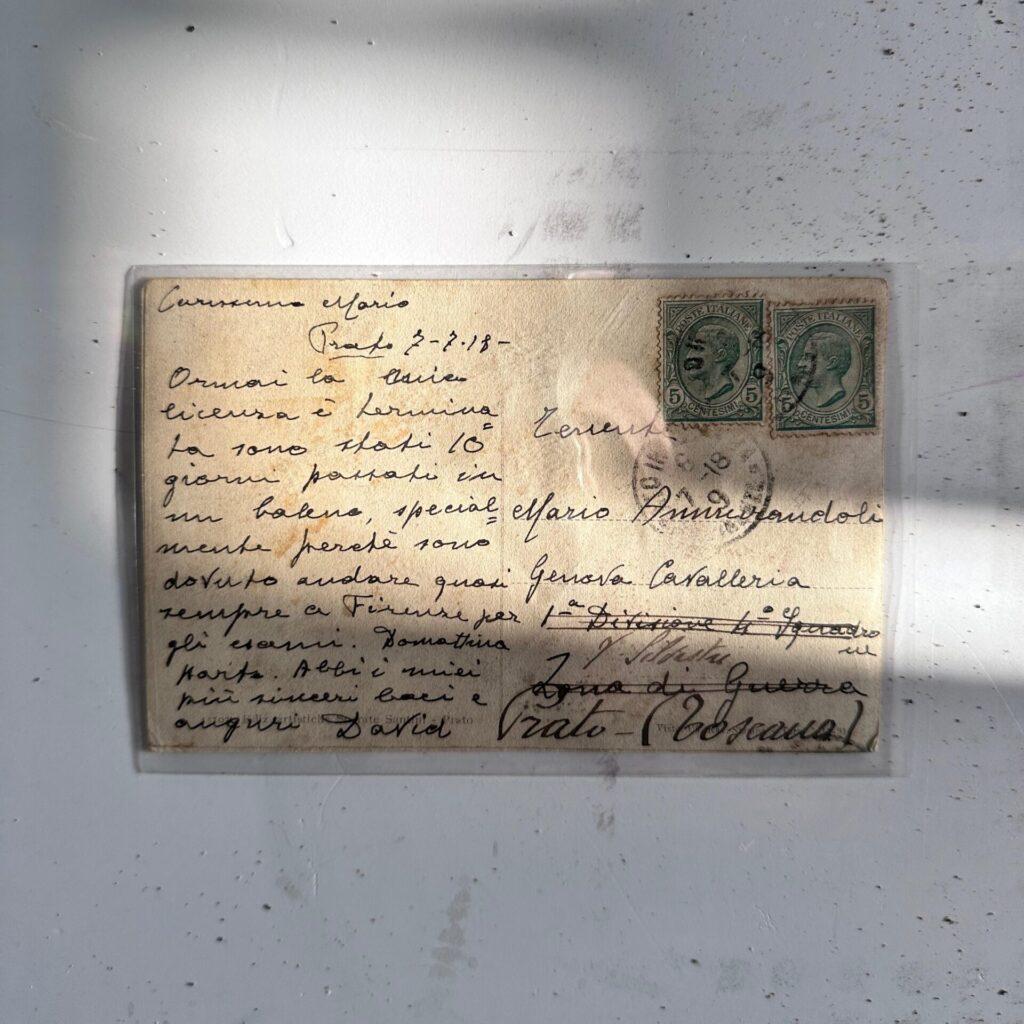 Carissimo Mario
Prato 7-7.18-
Ormai la mia
licenza è termina=
ta sono stati 10
giorni passati in
un baleno, special=
mente perchè sono
dovuto andare quasi
sempre a Firenze per
gli esami. Domattina
parto. Abbi i miei
più sinceri baci e
auguri David
POSTE ITALIANE
5 5
CENTESIMI
POSTE ITALIANE
5
CENTESIMI
7-18
Mario Ammirandoli
Genova Cavalleria
1ª Divisione 4º Squadro
ne
Zona di Guerra
Prato - (Toscana)
Prato